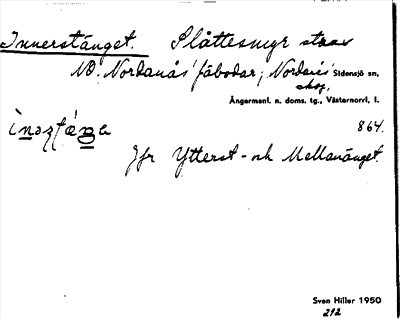 Innerstänget. Slåttesmyr strax
NO. Nordanås' fäbodar; Nordanås' Sidensjö sn,
skog.
Ångermanl. n. doms. tg., Västernorrl. l.
864.
Jfr Ytterst- och Mellanänget.
Sven Hiller 1950
212